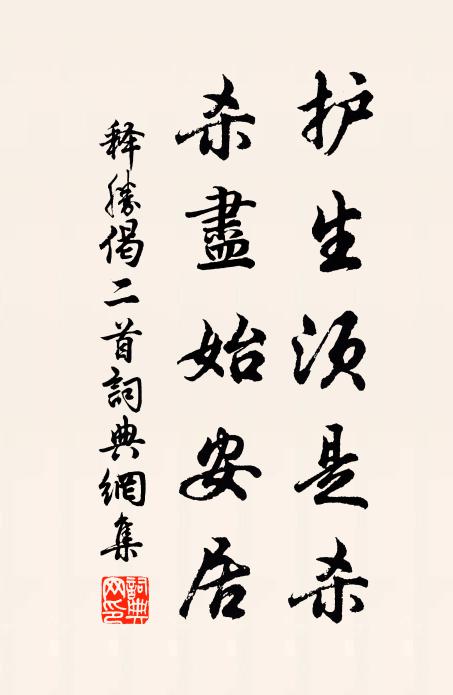 护生须是杀
杀盡始安居
释勝偈二首詞典網集
詞典網印